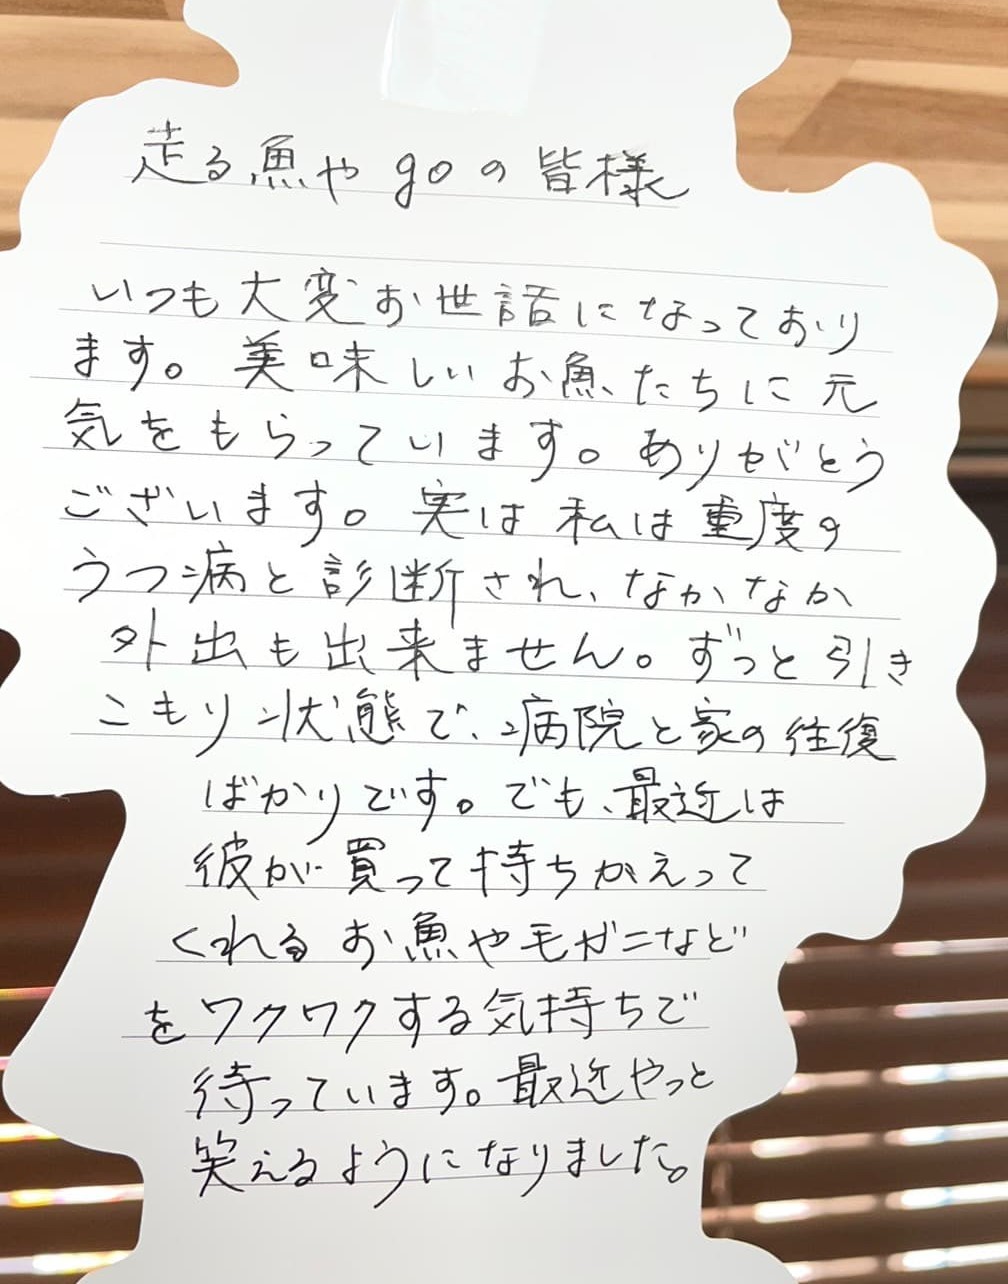 走る魚や goの皆様
いつも大変お世話になっており
ます。美味しいお魚たちに元
気をもらっています。ありがとう
ございます。実は私は重度の
うつ病と診断され、なかなか
外出も出来ません。ずっと引き
こもり状態で、病院と家の往復
ばかりです。でも、最近は
彼が買って持ちかえって
くれるお魚や毛ガニなど
をワクワクする気持ちで
待っています。最近やっと
笑えるようになりました。